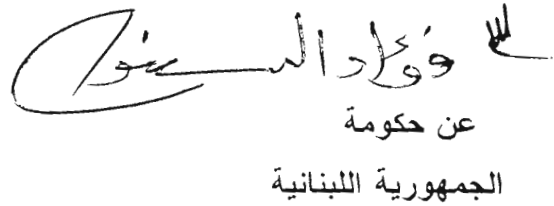 فؤاد السنيورة
عن حكومة
الجمهورية اللبنانية